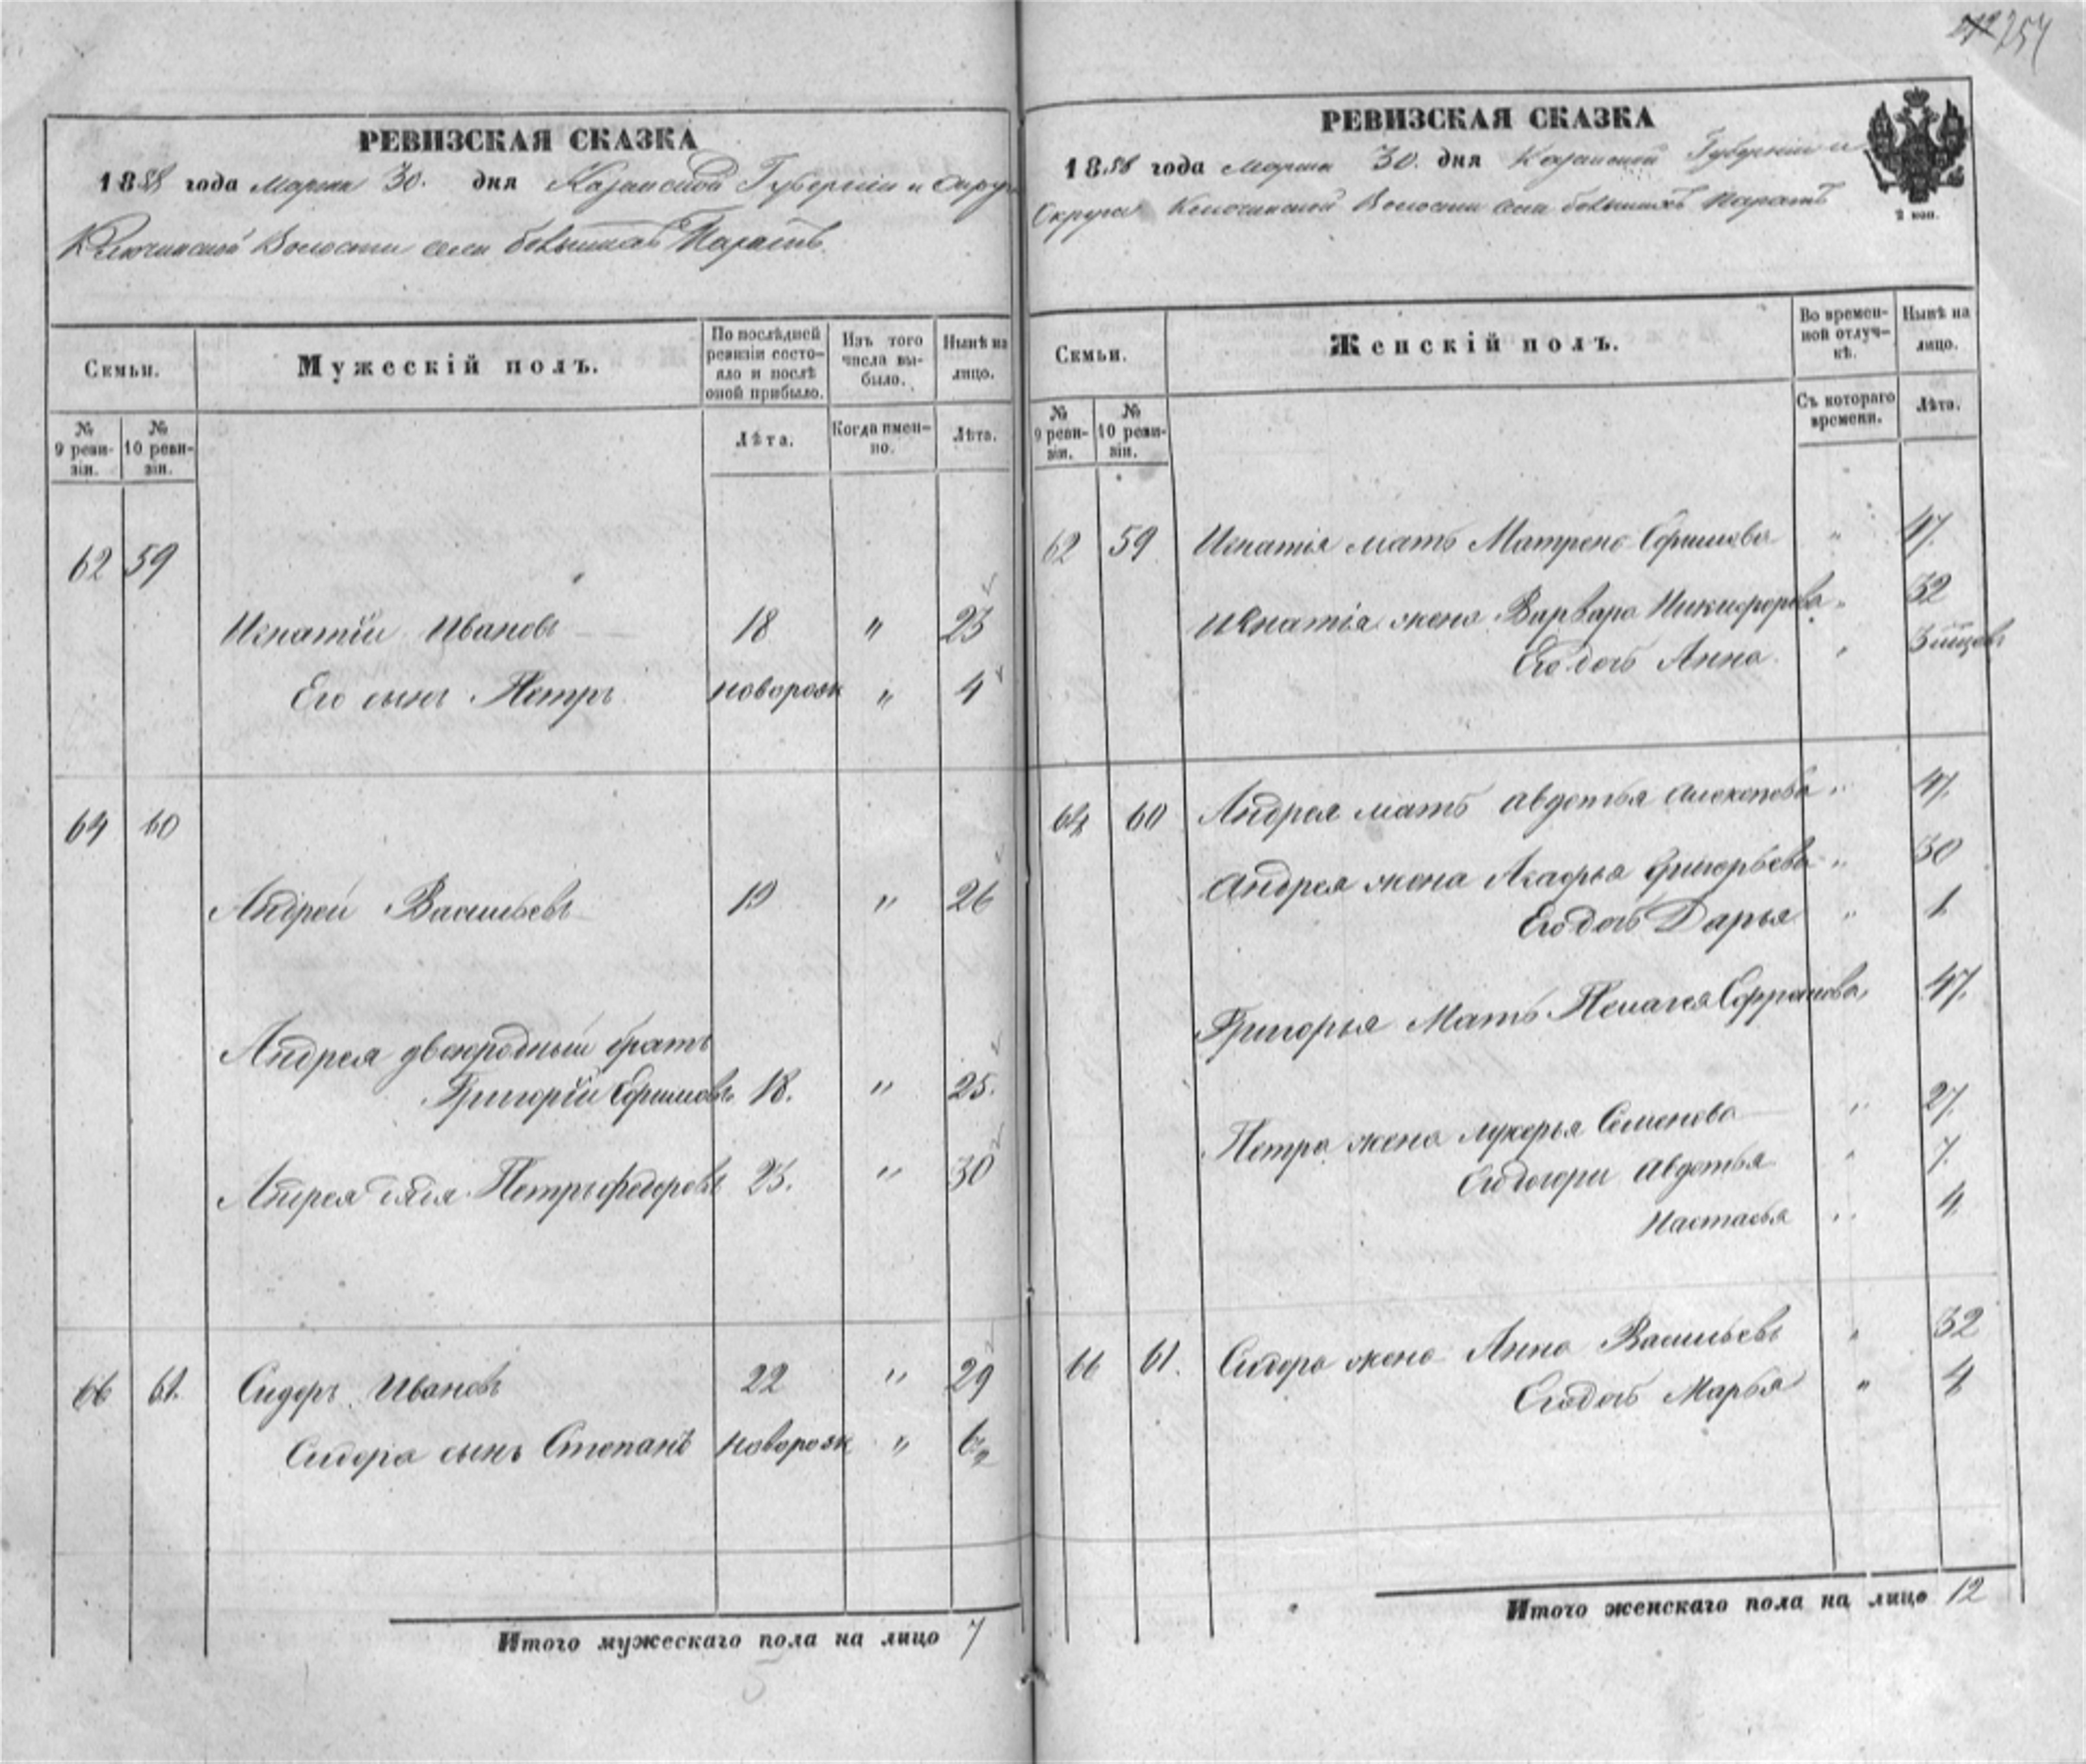 254
РЕВИЗСКАЯ СКАЗКА
1858 года Марта 30. дня Казанской Губерніи и Округа
Ключинской Волости села большихъ Паратъ
Семьи.
Мужескій полъ.
По послѣдней ревизіи состояло и послѣ оной прибыло.
Изъ того числа выбыло.
Нынѣ на лицо.
№ 9 ревизіи.
№ 10 ревизіи.
Лѣта.
Когда именно.
Лѣта.
62 59
Игнатій Ивановъ 18 " 25
Его сынъ Петръ новорож " 4
64 60
Андрей Васильевъ 19 " 26
Андрея двоюродный братъ
Григорій Ефимовъ 18. " 25.
Андрея дядя Петръ Федоровъ 23. " 30
66 61. Сидоръ Ивановъ 22 " 29
Сидора сынъ Степанъ новорож "
Итого мужескаго пола на лицо 7
РЕВИЗСКАЯ СКАЗКА
1858 года Марта 30. дня Казанской Губерніи и
Округа Ключинской Волости села большихъ Паратъ
2 коп.
Семьи.
Женскій полъ.
Во временной отлучкѣ.
Нынѣ на лицо.
№ 9 ревизіи.
№ 10 ревизіи.
Съ котораго времени.
Лѣта.
62 59 Игнатія мать Матрена Ефимова " 47.
Игнатія жена Варвара Никифорова " 32
Его дочь Анна " 3 мѣсяц
64 60 Андрея мать Авдотья Алексѣева " 47.
Андрея жена Агафья Григорьева " 30
Его дочь Дарья " 1
Григорья Мать Пелагея 47.
Петра жена Лукерья Семенова " 27.
Его дочери Авдотья " 7.
Настасья " 4
66 61. Сидора жена Анна Васильев " 32
Его дочь Марья " 4
Итого женскаго пола на лицо 12